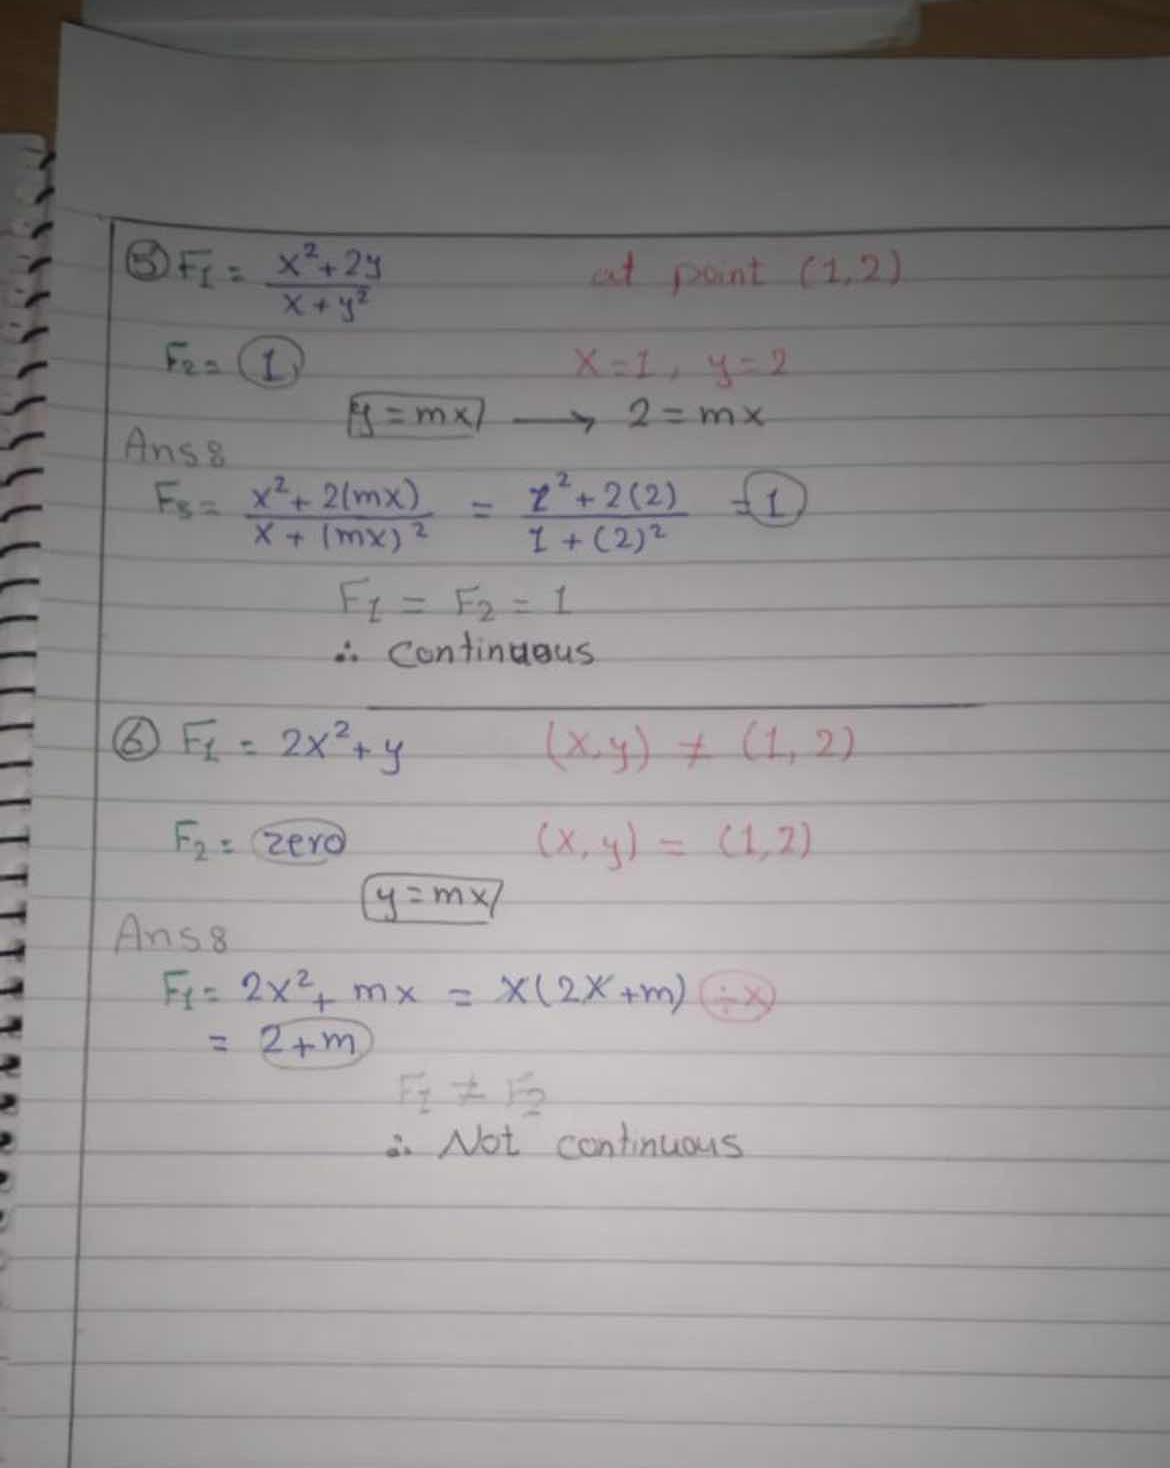 ⑤ F₁ = (x²+2y)/(x+y²) at point (1,2)
F₂= 1 x=1, y=2
y=mx → 2=mx
Ans8
F₃= (x²+2(mx))/(x+(mx)²) = (1²+2(2))/(1+(2)²) = 1
F₁ = F₂ = 1
∴ Continuous
⑥ F₁ = 2x²+y (x,y) ≠ (1,2)
F₂= zero (x,y) = (1,2)
y=mx
Ans8
F₁= 2x²+mx = x(2x+m) ÷x
= 2+m
F₁ ≠ F₂
∴ Not continuous